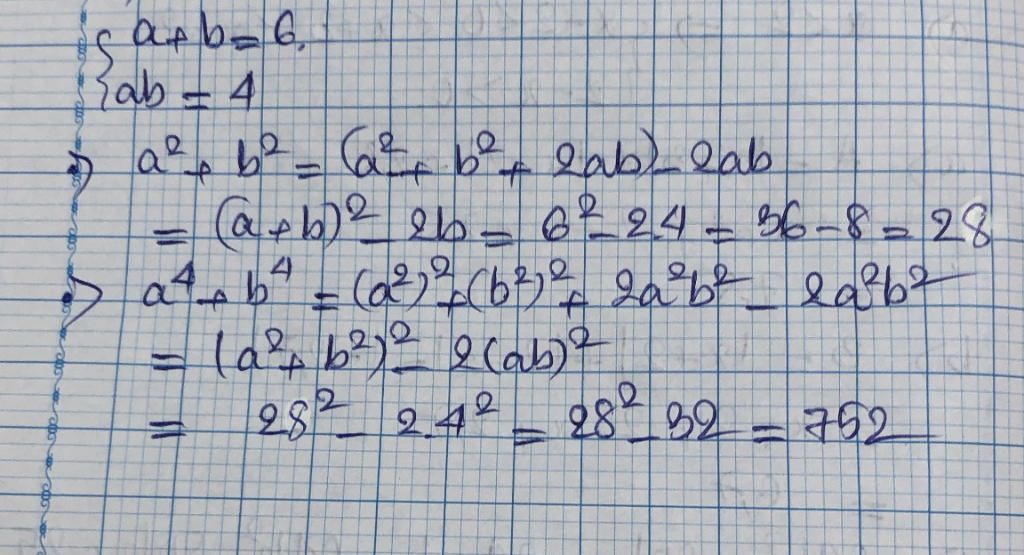 { a + b = 6.
{ ab = 4
⇒ a² + b² = (a² + b² + 2ab) - 2ab
= (a + b)² - 2b = 6² - 2.4 = 36 - 8 = 28
⇒ a⁴ + b⁴ = (a²)² + (b²)² + 2a²b² - 2a²b²
= (a² + b²)² - 2(ab)²
= 28² - 2.4² = 28² - 32 = 752